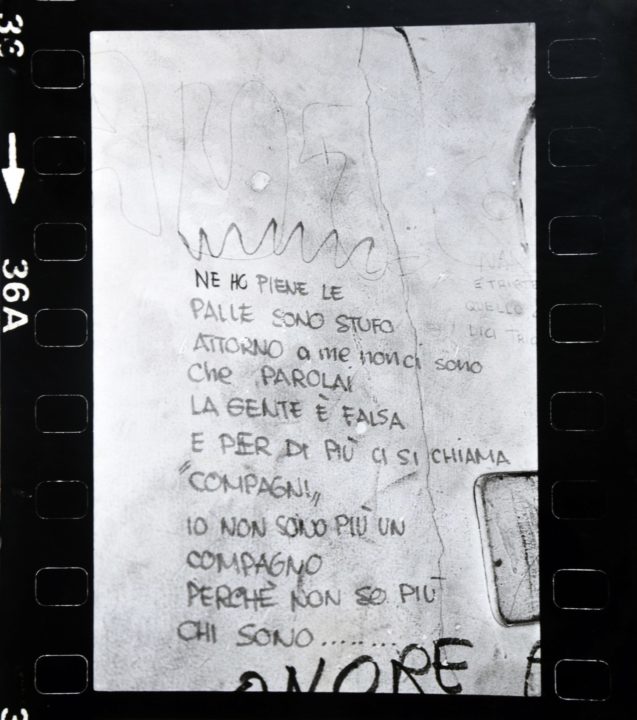 36A
NE HO PIENE LE
PALLE SONO STUFO
ATTORNO a me non ci sono
Che PAROLAI
LA GENTE È FALSA
E PER DI PIÙ CI SI CHIAMA
"COMPAGNI"
IO NON SONO PIÙ UN
COMPAGNO
PERCHÈ NON SO PIÙ
CHI SONO ........
ONORE
E TRISTE
QUELLO